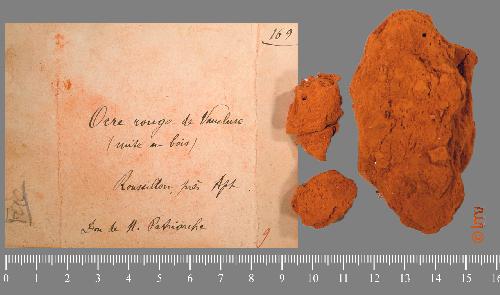 169
Ocre rouge de Vaucluse
(mite en bois)
Roussillon, près Apt.
Don de M. Patriarche
9
0 1 2 3 4 5 6 7 8 9 10 11 12 13 14 15 16